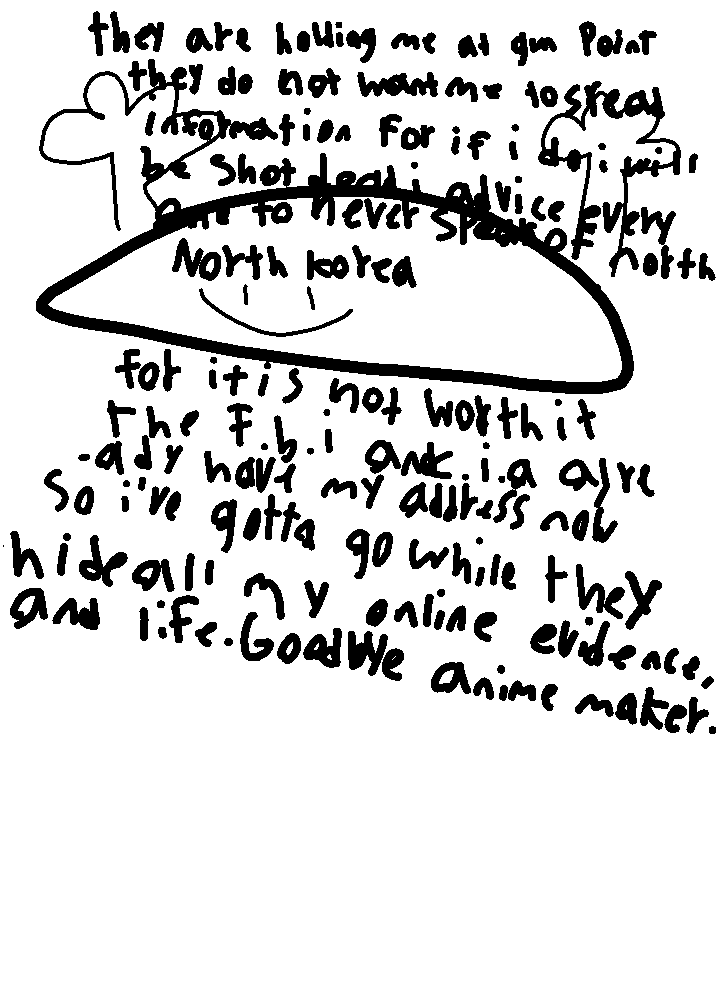 they are holling me at gun Point
they do not want me to spread
information for if i do i will
be shot dead i advice every
one to never speak of north
North korea
for it is not worth it
the F.b.i and c.i.a alre
-ady have my address now
So i've gotta go while they
hide all my online evidence,
and life. Goodbye anime maker.